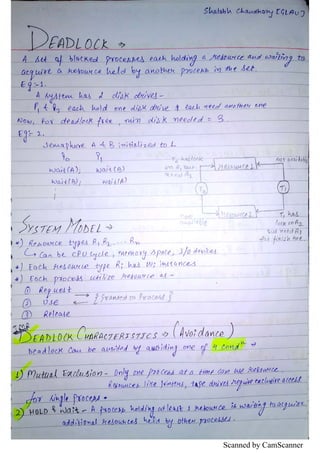 Shobhit Chaudhary [GLAU]
DEADLOCK →
A set of blocked processes each holding a resource and waiting to
acquire a resource held by another process in the set.
Eg:-1.
A system has 2 disk drives-
P₁ & P₂ each hold one disk drive & each need another one
Now, For deadlock free, min disk needed = 3.
Eg:- 2.
Semaphore A & B initialized to 1.
P0 P1
wait(A); wait(B)
wait(B); wait(A)
T₀ has lock on R₁, but need R₂
Resource 1
Not available
T₀
T₁
Not available
Resource 2
T₁ has lock on R₂ but need R₁ for finish one
SYSTEM MODEL →
•) Resource types R₁, R₂ ..... Rm
↳ Can be CPU cycle, memory space, I/O devices
•) Each Resource type Ri has Wi instances
•) Each process utilize resource as -
① Request
② Use
[Granted to Process]
③ Release
IMP
DEADLOCK CHARACTERISTICS → (Avoidance)
Deadlock can be avoided by avoiding one of 4 cond →
1) Mutual Exclusion - Only one process at a time can use resource.
Resources like printers, tape drives require exclusive access
for single process.
2) HOLD & Wait - A process holding atleast 1 resource is waiting to acquire
additional resources held by other processes.
Scanned by CamScanner